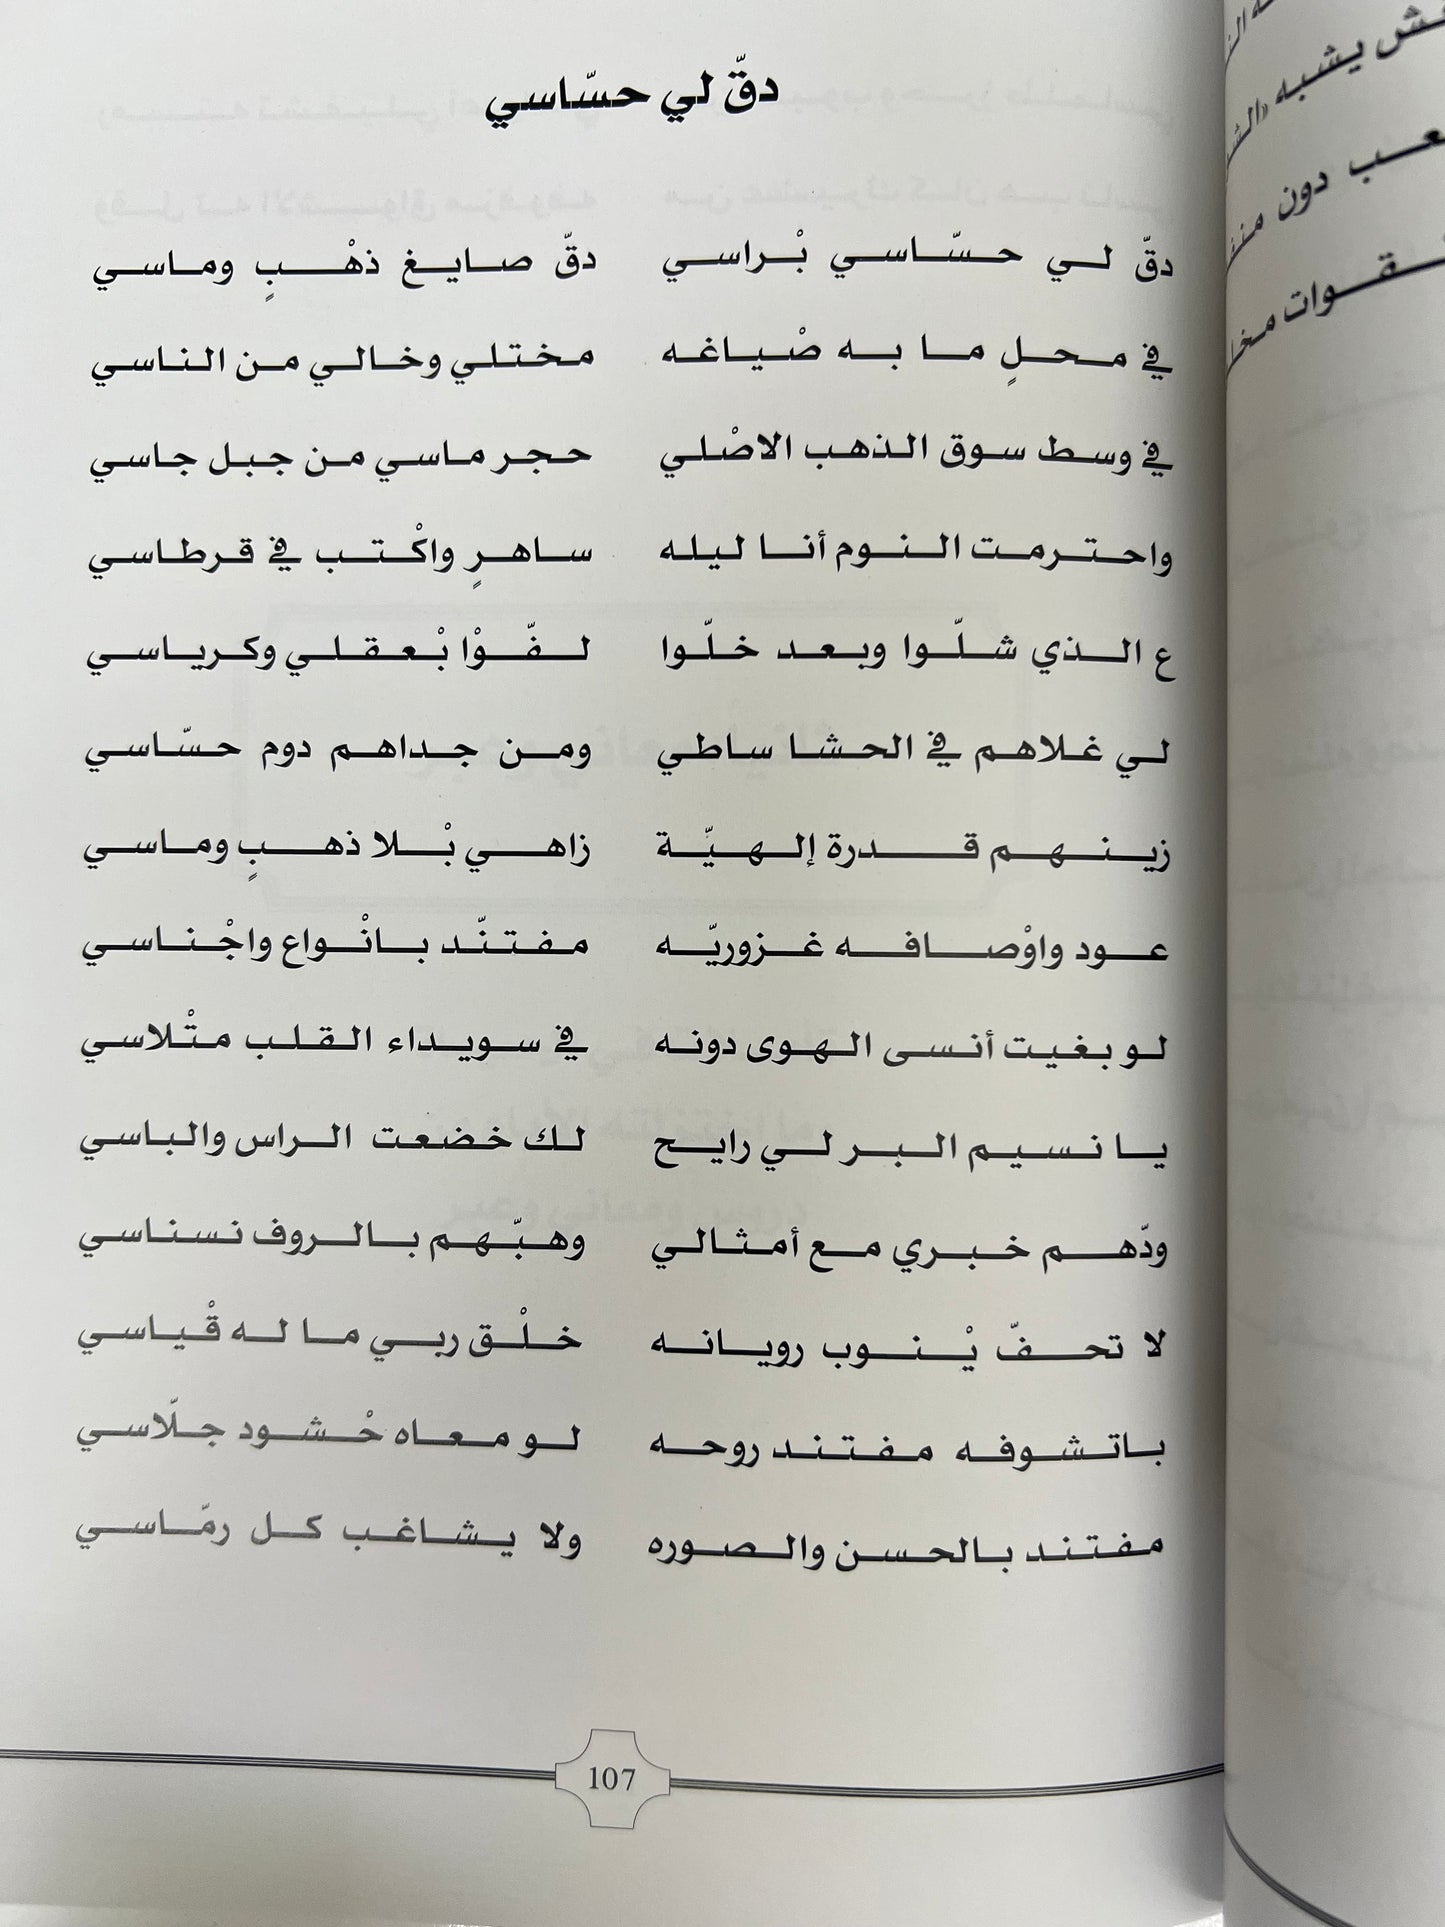 دقّ لي حسّاسي
دقّ لي حسّاسي بْراسي دقّ صايغ ذهْبٍ وماسي
في محلٍ ما به صْياغه مختلي وخالي من الناسي
في وسط سوق الذهب الاصْلي حجر ماسي من جبل جاسي
واحترمت النوم أنا ليله ساهرٍ واكْتب في قرطاسي
ع الذي شلّوا وبعد خلّوا لفّوْا بْعقلي وكرياسي
لي غلاهم في الحشا ساطي ومن جداهم دوم حسّاسي
زينهم قدرة إلهيّة زاهي بْلا ذهبٍ وماسي
عود واوْصافه غزوريّه مفتنّد بانْواع واجْناسي
لو بغيت أنسى الهوى دونه في سويداء القلب متْلاسي
يا نسيم البر لي رايح لك خضعت الراس والباسي
ودّهم خبري مع أمثالي وهبّهم بالروف نسناسي
لا تحفّ يْنوب رويانه خلْق ربي ما له قْياسي
باتشوفه مفتند روحه لو معاه حْشود جلّاسي
مفتند بالحسن والصوره ولا يشاغب كل رمّاسي
107
يشبه
دون